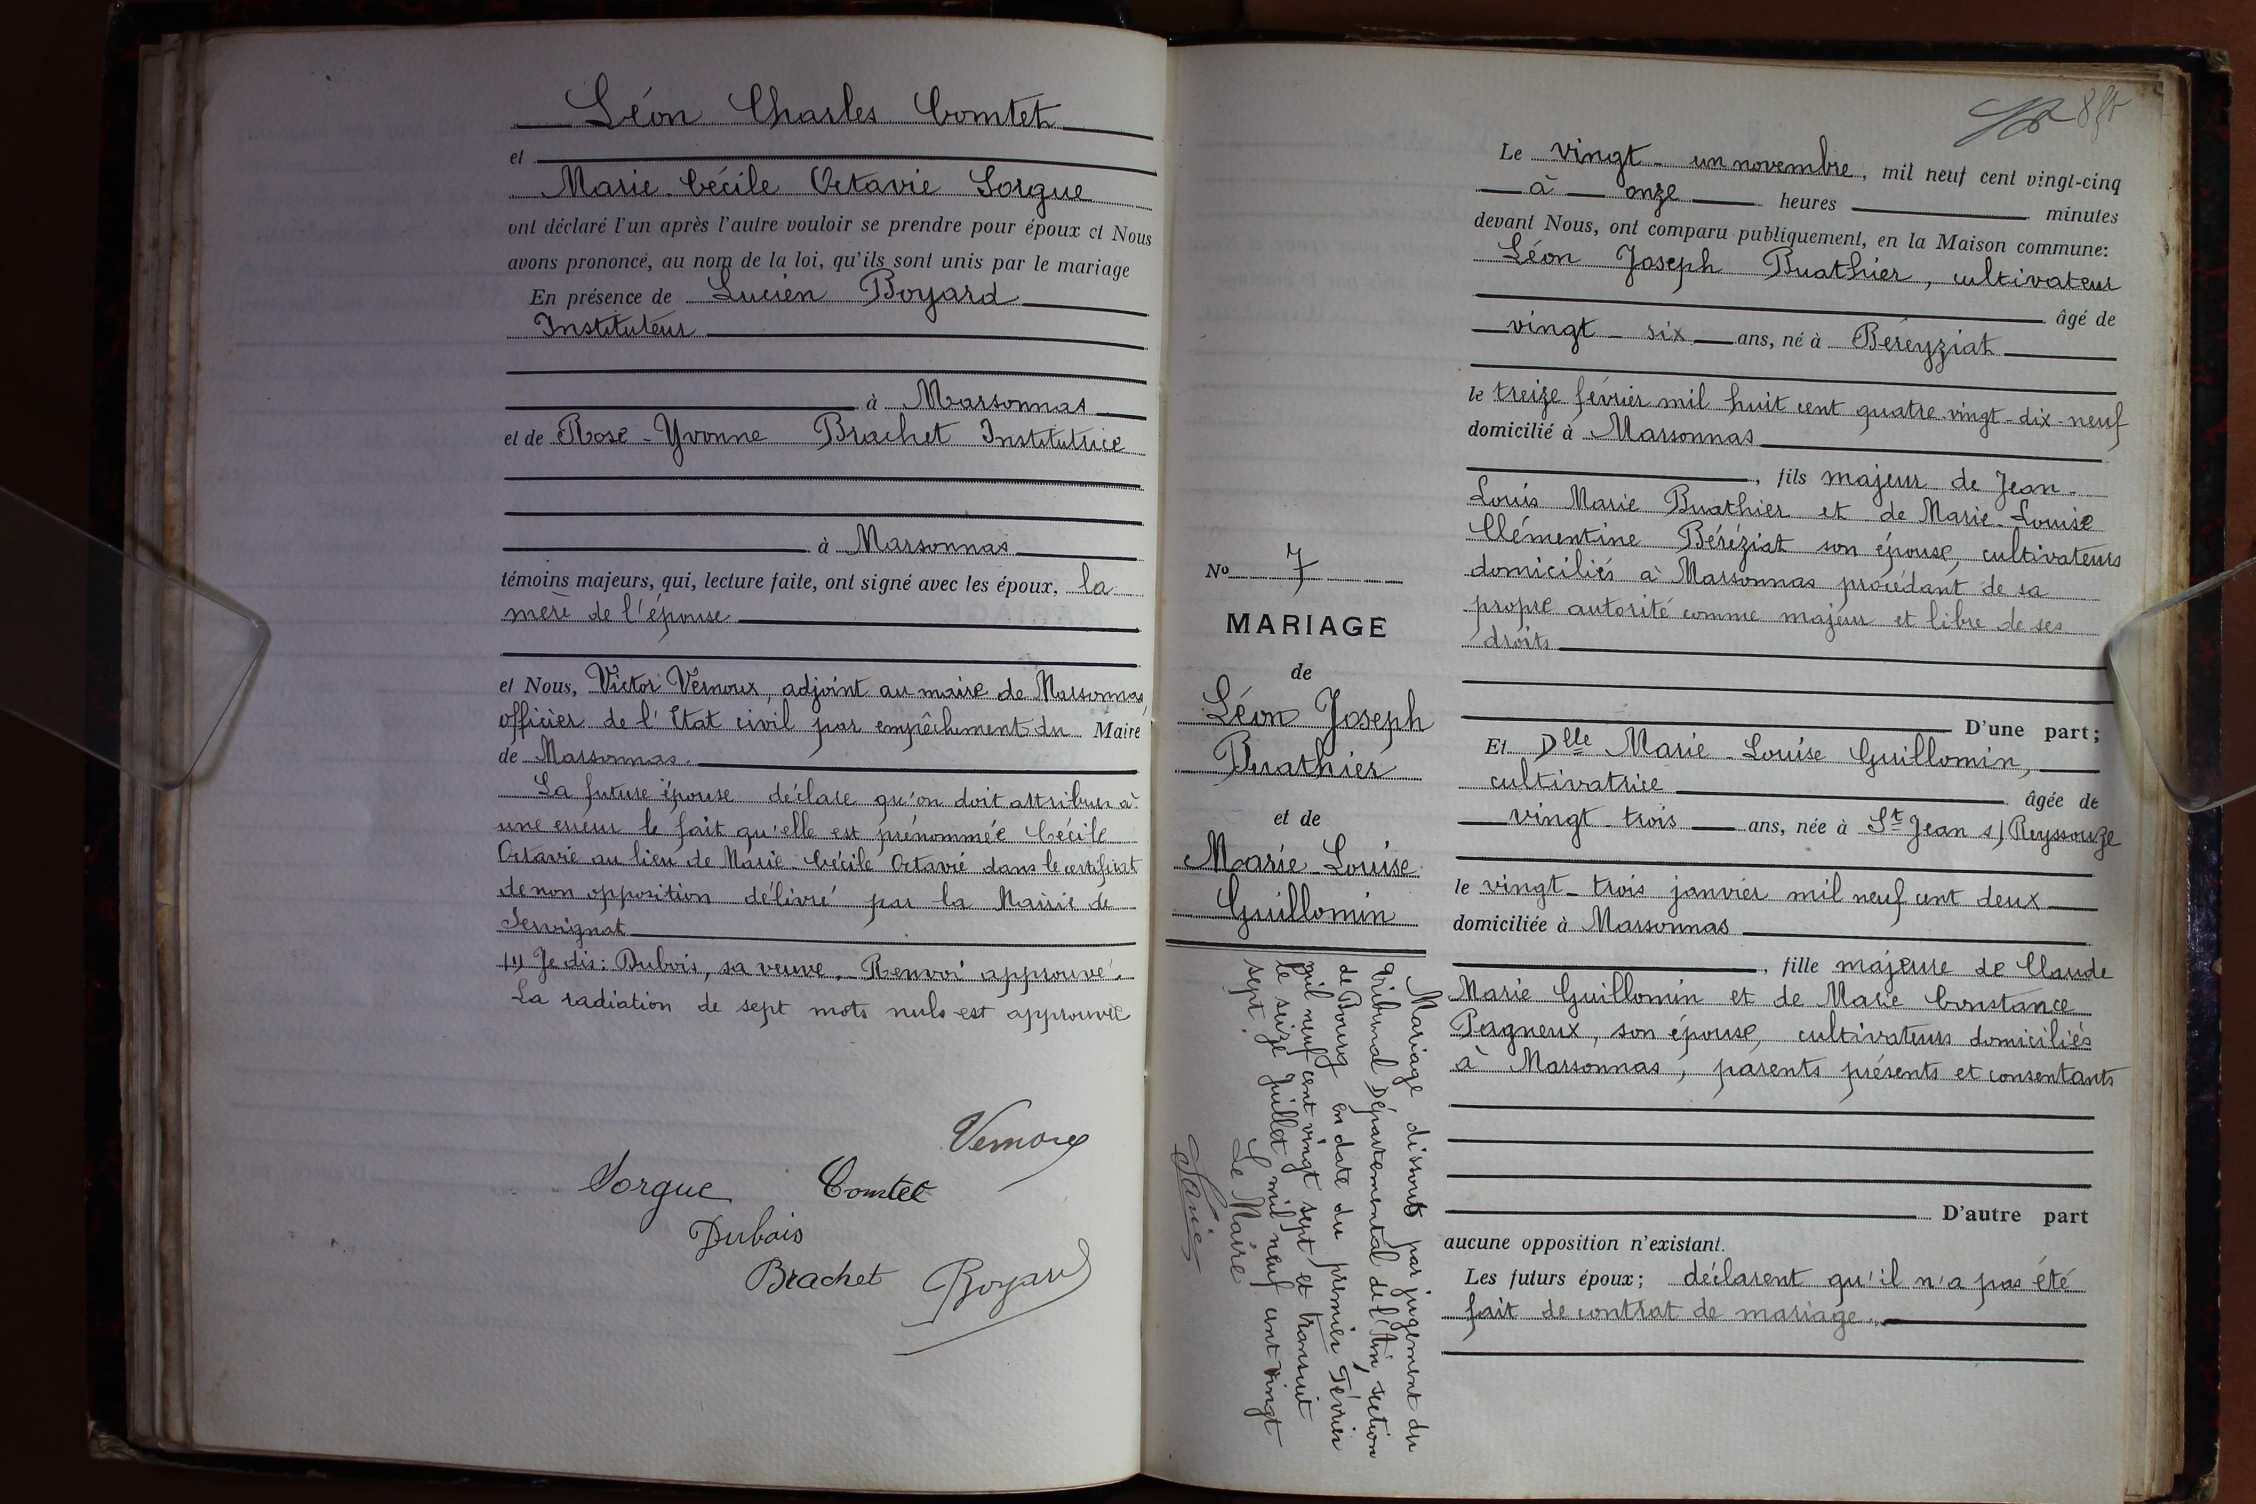 Léon Charles Comtet
et
Marie Cécile Octavie Sorgue
ont déclaré l'un après l'autre vouloir se prendre pour époux et Nous
avons prononcé, au nom de la loi, qu'ils sont unis par le mariage
En présence de Lucien Boyard
Instituteur
à Marsonnas
et de Rose-Yvonne Brachet Institutrice
à Marsonnas
témoins majeurs, qui, lecture faite, ont signé avec les époux, la
mère de l'épouse
et Nous, Victor Vernoux, adjoint au maire de Marsonnas,
officier de l'Etat civil par empêchement du Maire
de Marsonnas.
La future épouse déclare qu'on doit attribuer à
une erreur le fait qu'elle est prénommée Cécile
Octavie au lieu de Marie-Cécile Octavie dans le certificat
de non opposition délivré par la Mairie de
Servignat
(1) Je dis: Dubois, sa veuve. Renvoi approuvé.
La radiation de sept mots nuls est approuvée
Vernoux
Sorgue Comtet
Dubois
Brachet Boyard
Le vingt-un novembre, mil neuf cent vingt-cinq
à onze heures minutes
devant Nous, ont comparu publiquement, en la Maison commune:
Léon Joseph Buathier, cultivateur
âgé de
vingt-six ans, né à Béreyziat
le treize février mil huit cent quatre-vingt-dix-neuf
domicilié à Marsonnas
, fils majeur de Jean-
Louis Marie Buathier et de Marie-Louise
Clémentine Béréziat son épouse, cultivateurs
domiciliés à Marsonnas procédant de sa
propre autorité comme majeur et libre de ses
droits
D'une part;
Et Dlle Marie-Louise Guillomin,
cultivatrice âgée de
vingt-trois ans, née à St Jean s/ Reyssouze
le vingt-trois janvier mil neuf cent deux
domiciliée à Marsonnas
, fille majeure de Claude
Marie Guillomin et de Marie Constance
Pagneux, son épouse, cultivateurs domiciliés
à Marsonnas, parents présents et consentants
D'autre part
aucune opposition n'existant.
Les futurs époux; déclarent qu'il n'a pas été
fait de contrat de mariage.
No 7
MARIAGE
de
Léon Joseph
Buathier
et de
Marie-Louise
Guillomin
Mariage dissout par jugement du
Tribunal Départemental de l'Ain, section
de Bourg en date du premier Février
mil neuf cent vingt sept et transcrit
le seize Juillet mil neuf cent vingt
sept.
Le Maire